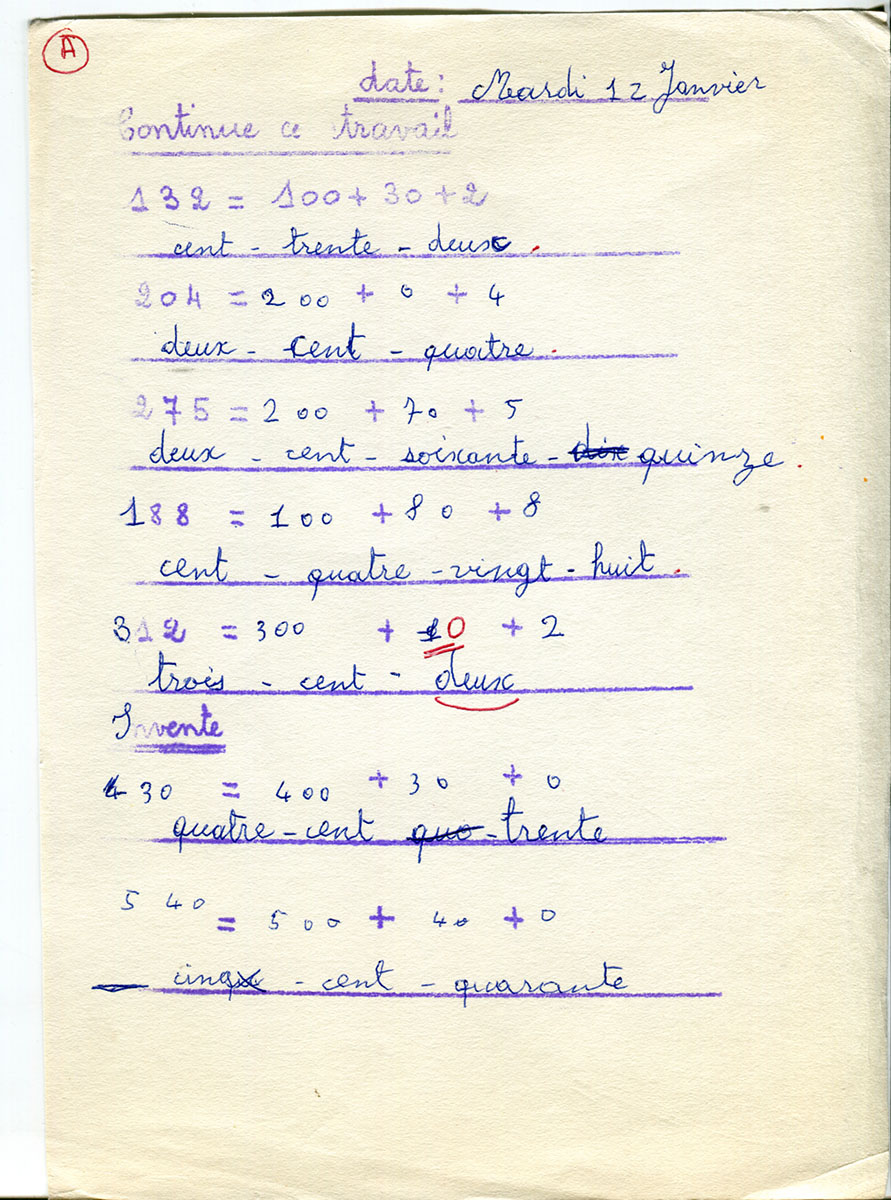 A
date: Mardi 12 Janvier
Continue ce travail
132 = 100 + 30 + 2
cent - trente - deux.
204 = 200 + 0 + 4
deux - cent - quatre.
275 = 200 + 70 + 5
deux - cent - soixante - dix quinze.
188 = 100 + 80 + 8
cent - quatre - vingt - huit.
312 = 300 + 10 + 2
trois - cent - deux
Invente
430 = 400 + 30 + 0
quatre - cent qua - trente
540 = 500 + 40 + 0
cinq - cent - quarante